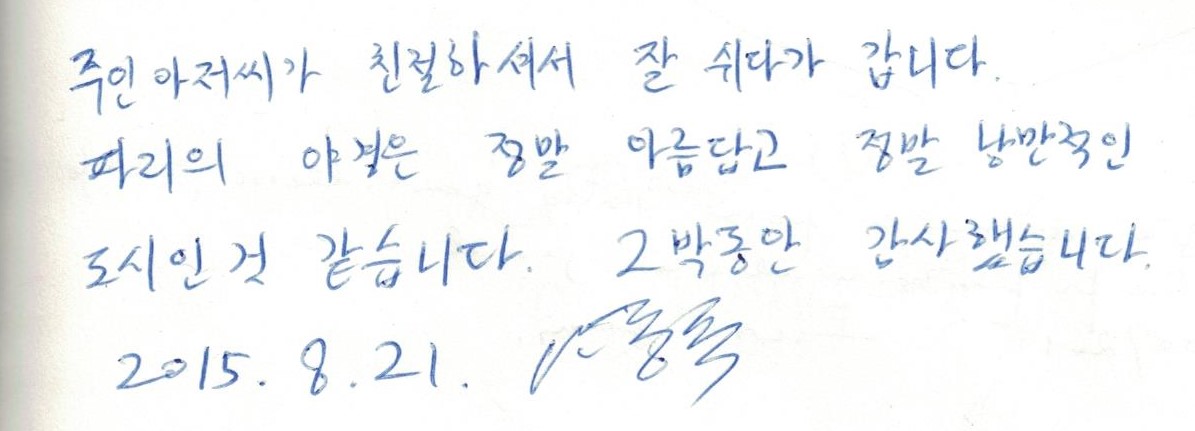 주인아저씨가 친절하셔서 잘 쉬다가 갑니다.
파리의 야경은 정말 아름답고 정말 낭만적인
도시인 것 같습니다. 2박동안 감사했습니다.
2015. 8. 21.